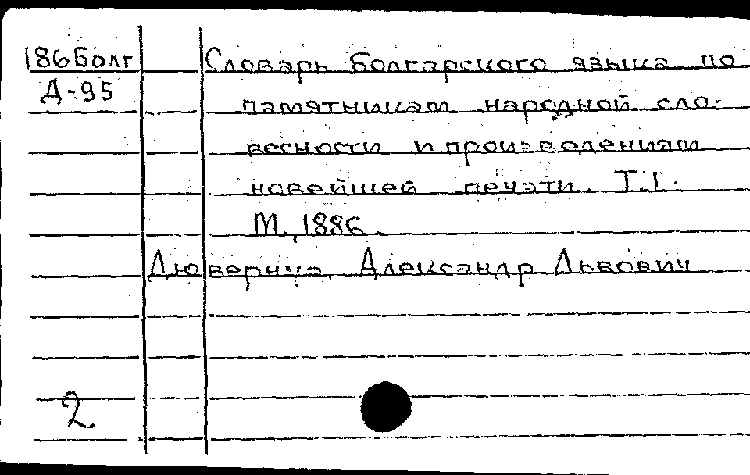 186Болг Словарь болгарского языка по
Д-95 памятникам народной сло-
весности и произведениям
новейшей печати. Т.I.
М., 1886.
Дювернуа, Александр Львович
2